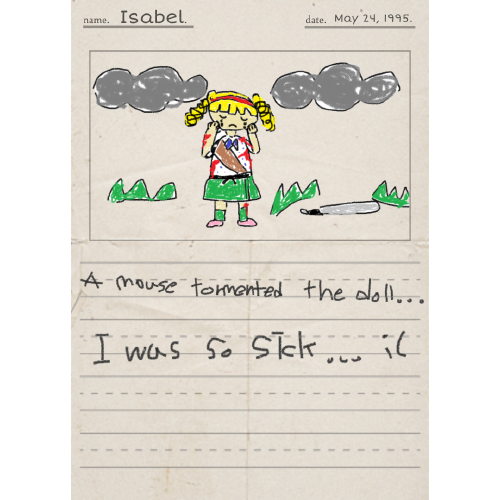 name. Isabel.
date. May 24, 1995.
A mouse tormented the doll...
I was so sick... ;(